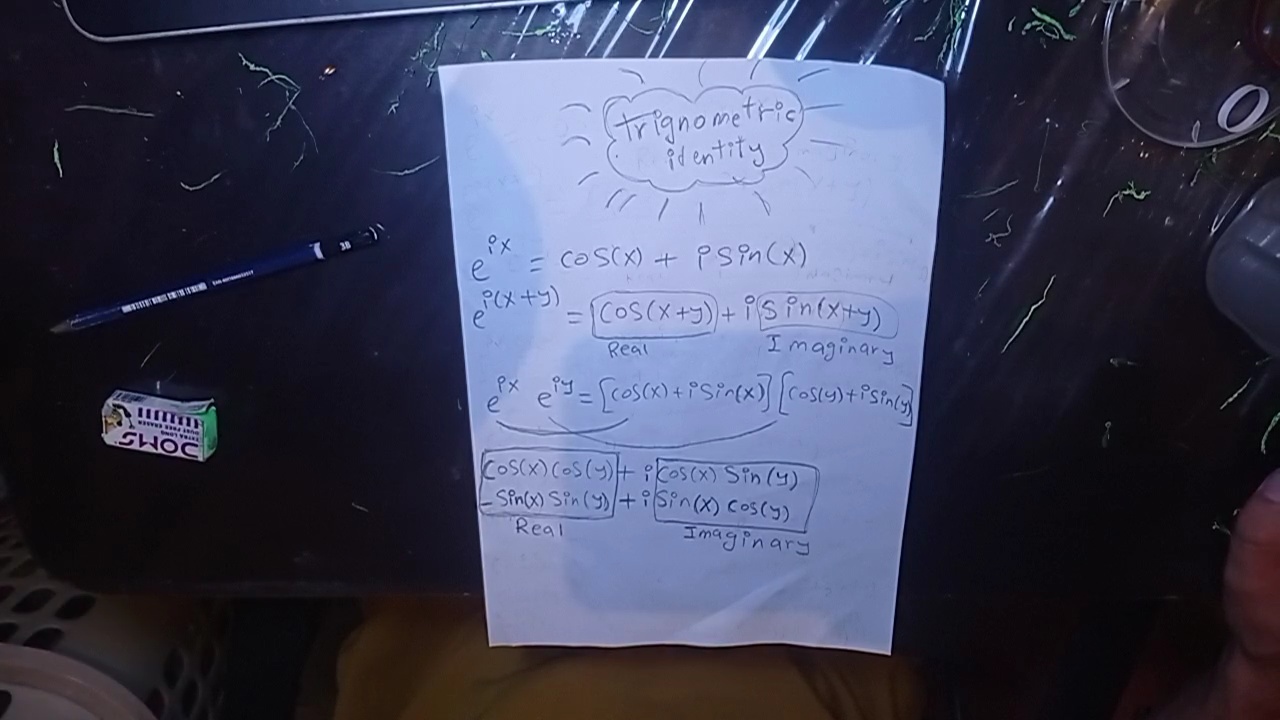 trignometric
identity
e^ix = cos(x) + i sin(x)
e^i(x+y) = cos(x+y) + i sin(x+y)
Real Imaginary
e^ix e^iy = [cos(x) + i sin(x)] [cos(y) + i sin(y)]
cos(x) cos(y) + i cos(x) sin(y)
- sin(x) sin(y) + i sin(x) cos(y)
Real Imaginary
3B
DOMS
EXTRA LONG
DUST FREE ERASER